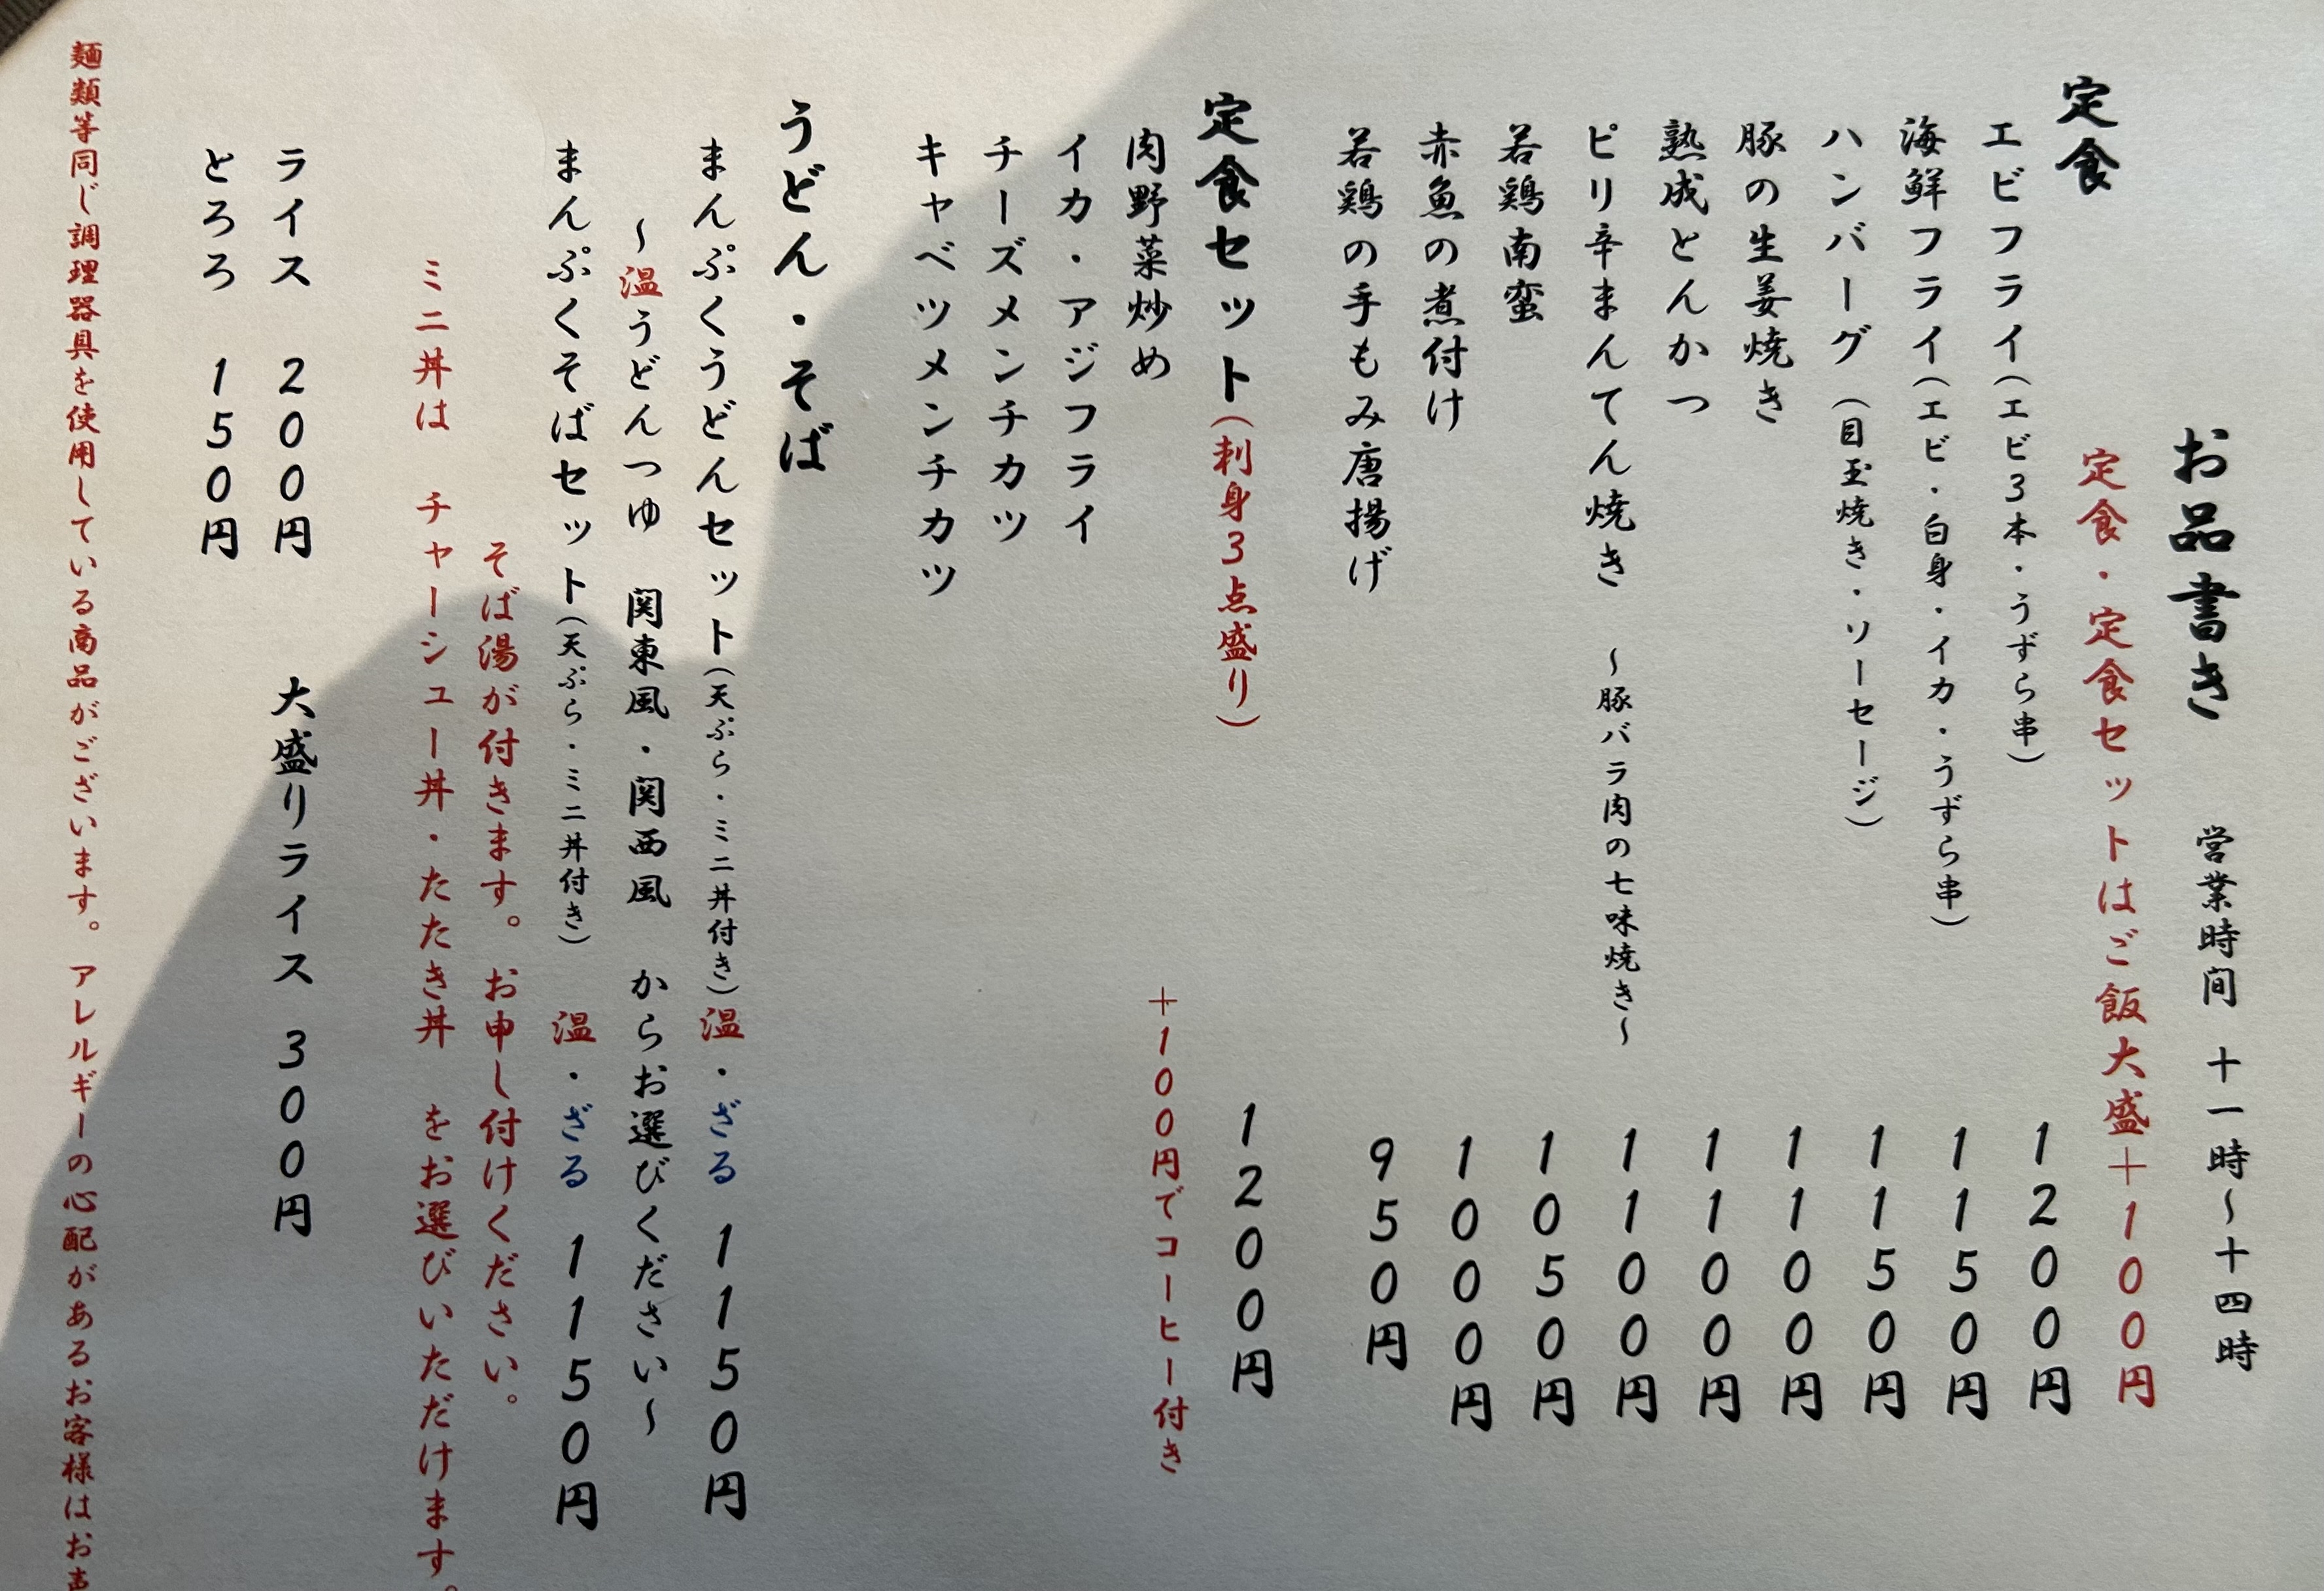 お品書き　営業時間　十一時～十四時
定食・定食セットはご飯大盛＋100円
定食
エビフライ(エビ3本・うずら串)　1200円
海鮮フライ(エビ・白身・イカ・うずら串)　1150円
ハンバーグ(目玉焼き・ソーセージ)　1150円
豚の生姜焼き　1100円
熟成とんかつ　1100円
ピリ辛まんてん焼き　～豚バラ肉の七味焼き～　1100円
若鶏南蛮　1050円
赤魚の煮付け　1000円
若鶏の手もみ唐揚げ　950円
定食セット(刺身3点盛り)　1200円
肉野菜炒め　＋100円でコーヒー付き
イカ・アジフライ
チーズメンチカツ
キャベツメンチカツ
うどん・そば
まんぷくうどんセット(天ぷら・ミニ丼付き)温・ざる　1150円
～温うどんつゆ　関東風・関西風　からお選びください～
まんぷくそばセット(天ぷら・ミニ丼付き)　温・ざる　1150円
そば湯が付きます。お申し付けください。
ミニ丼は　チャーシュー丼・たたき丼　をお選びいただけます。
ライス　200円　大盛りライス　300円
とろろ　150円
麺類等同じ調理器具を使用している商品がございます。アレルギーの心配があるお客様はお声